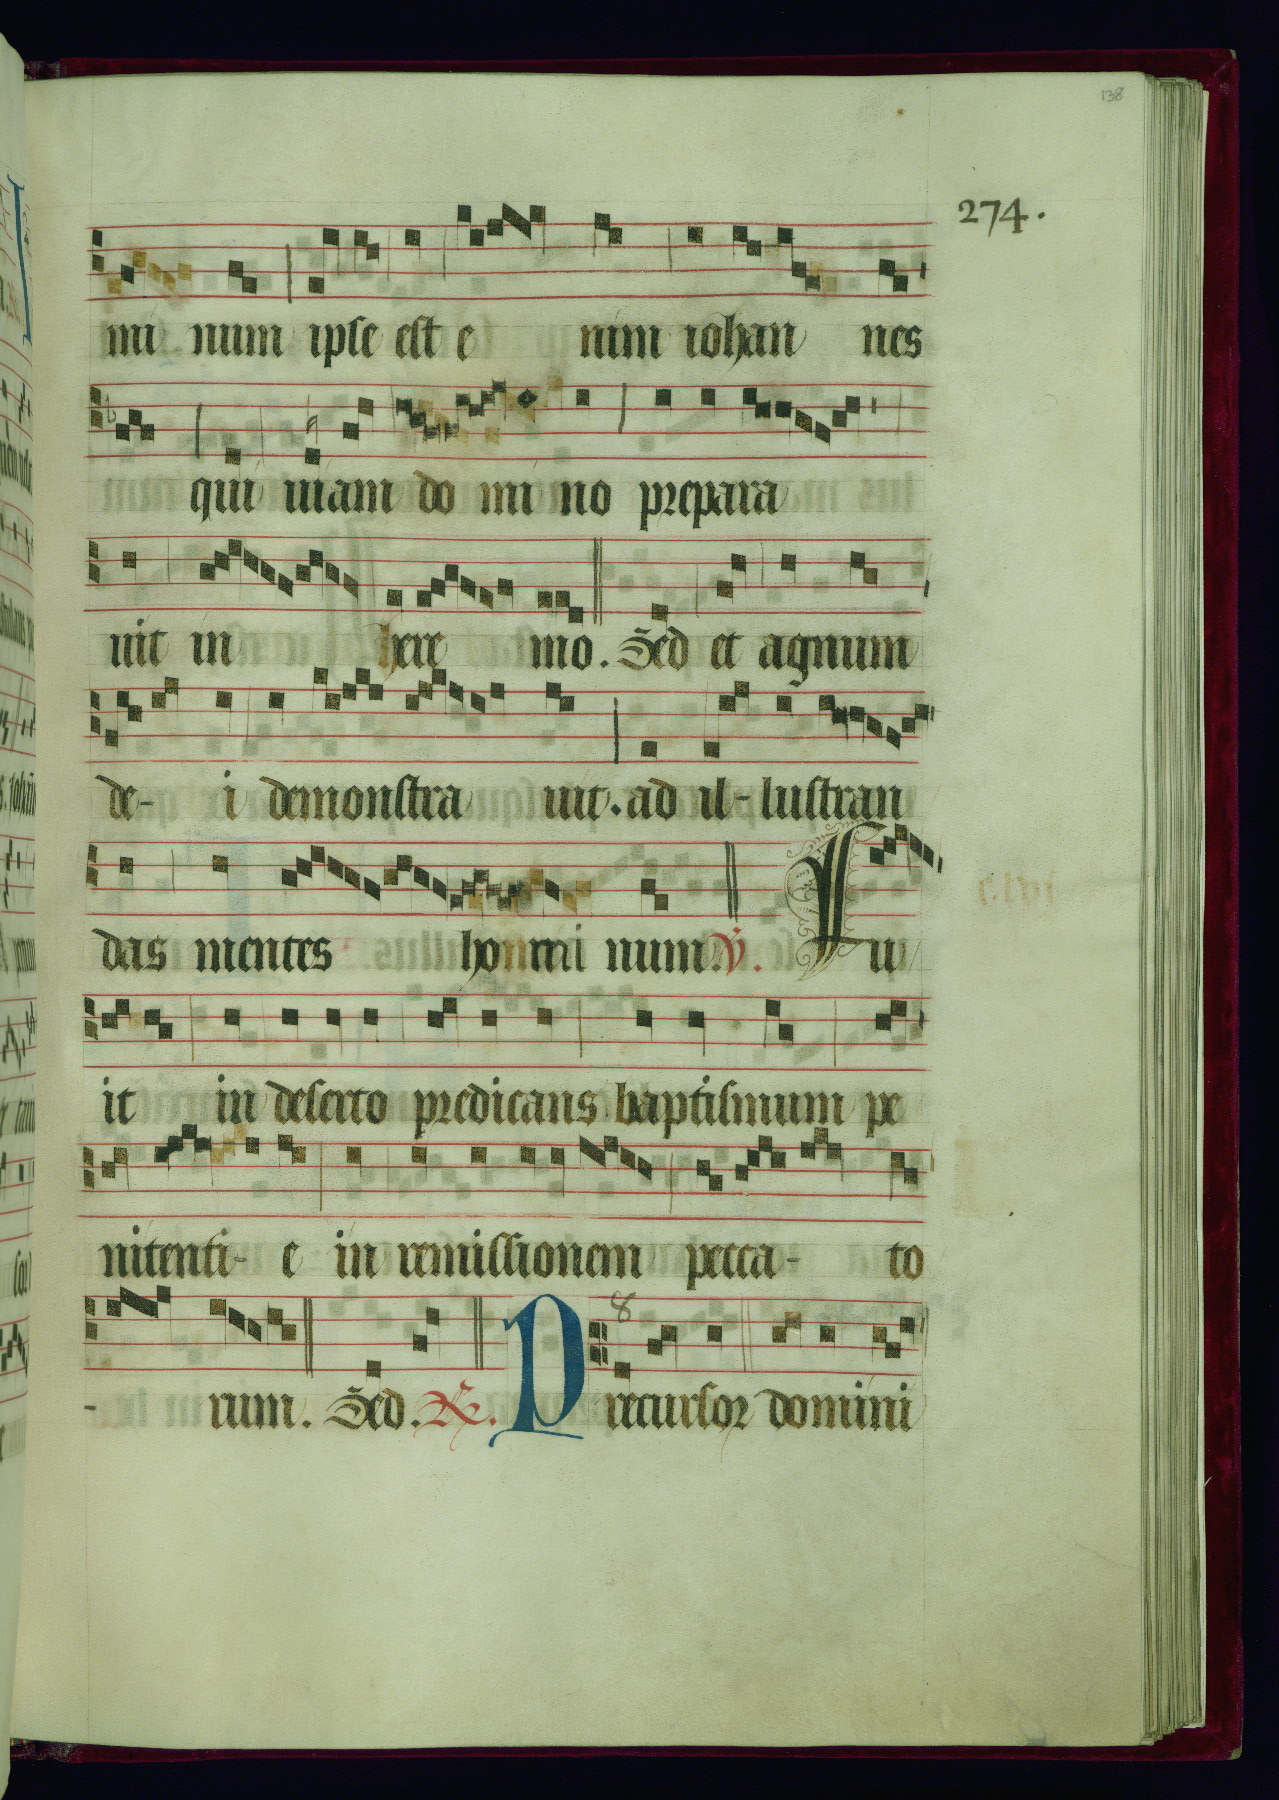 138
274.
mi num ipse est e nim iohan nes
qui uiam do mi no prepara
uit in here mo. Sed et agnum
de- i demonstra uit. ad il-lustran
das mentes homi num. V. Fu
it in deserto predicans baptismum pe
nitenti- e in remissionem pecca- to
8
- rum. Sed. R. Precursor domini